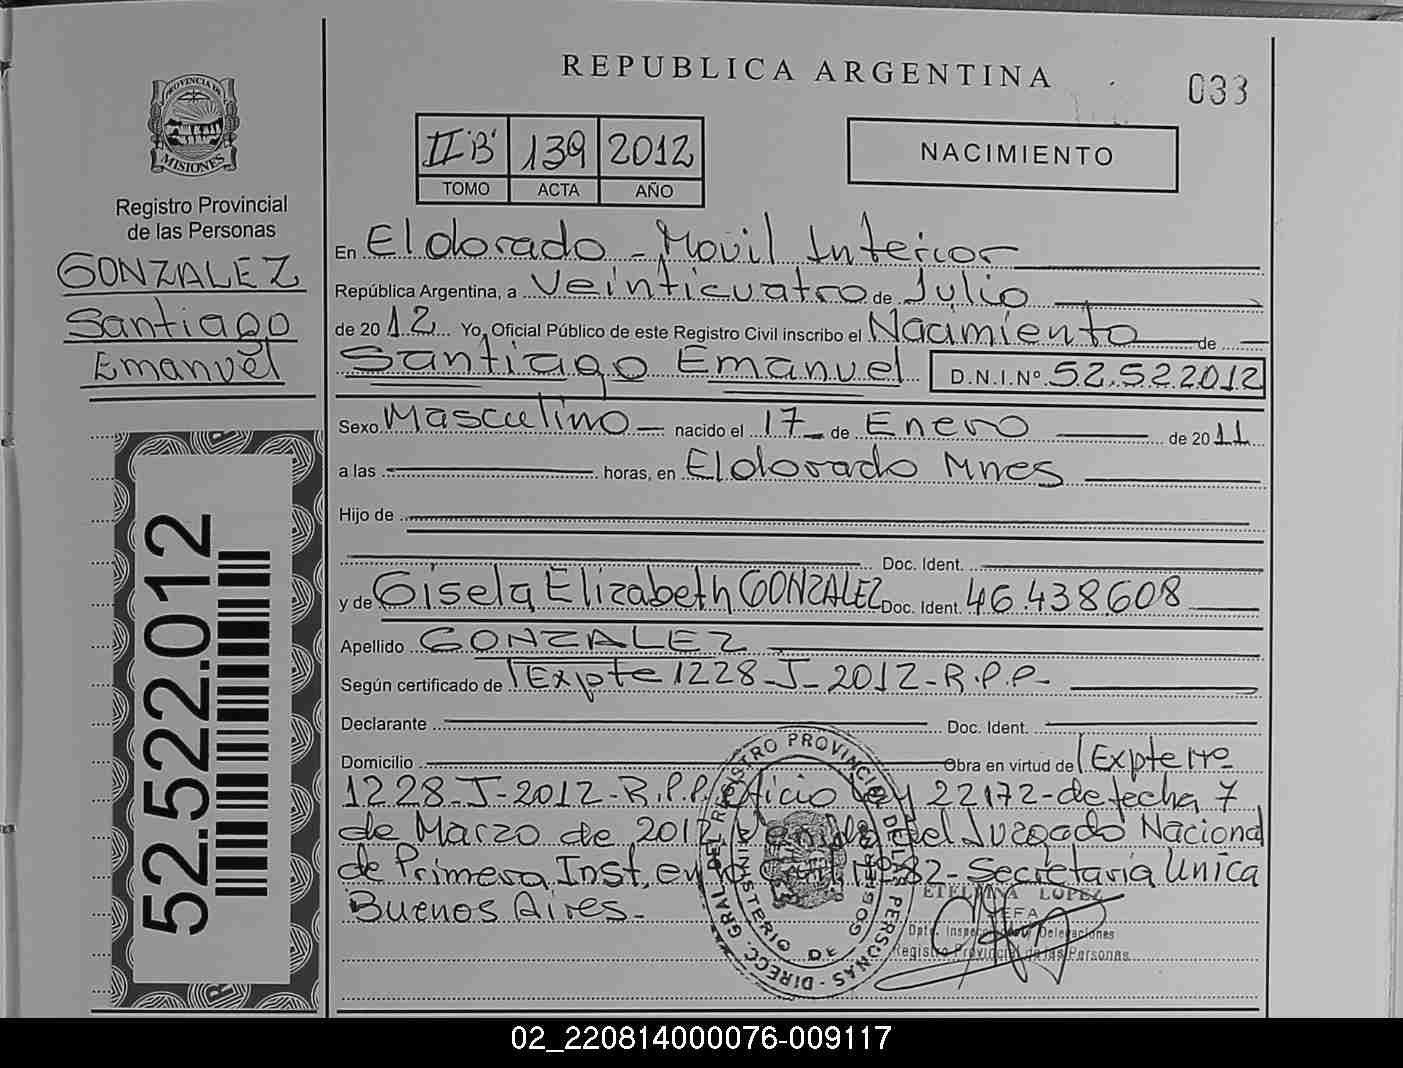 REPUBLICA ARGENTINA
033
PROVINCIA DE
MISIONES
Registro Provincial
de las Personas
GONZALEZ
Santiago
Emanuel
52.522.012
II"B" 139 2012
TOMO ACTA AÑO
NACIMIENTO
En Eldorado - Movil Interior
República Argentina, a Veinticuatro de Julio
de 2012 Yo, Oficial Público de este Registro Civil inscribo el Nacimiento de
Santiago Emanuel D.N.I.Nº 52.522.012
Sexo Masculino nacido el 17 de Enero de 2011
a las horas, en Eldorado Mnes
Hijo de
Doc. Ident.
y de Gisela Elizabeth GONZALEZ Doc. Ident. 46.438.608
Apellido GONZALEZ
Según certificado de Expte 1228-J-2012-R.P.P.-
Declarante Doc. Ident.
Domicilio Obra en virtud de Expte Nº
1228-J-2012-R.P.P. Oficio Ley 22172-de fecha 7
de Marzo de 2012 del Juzgado Nacional
de Primera Inst. en lo Civil Nº 82-Secretaría Unica
Buenos Aires.-
DIRECC. GRAL. DEL REGISTRO PROVINCIAL DE LAS PERSONAS
MINISTERIO DE GOBIERNO
LOPEZ
JEFA
Dpto. Inspección y Delegaciones
Registro Provincial de las Personas
02_220814000076-009117